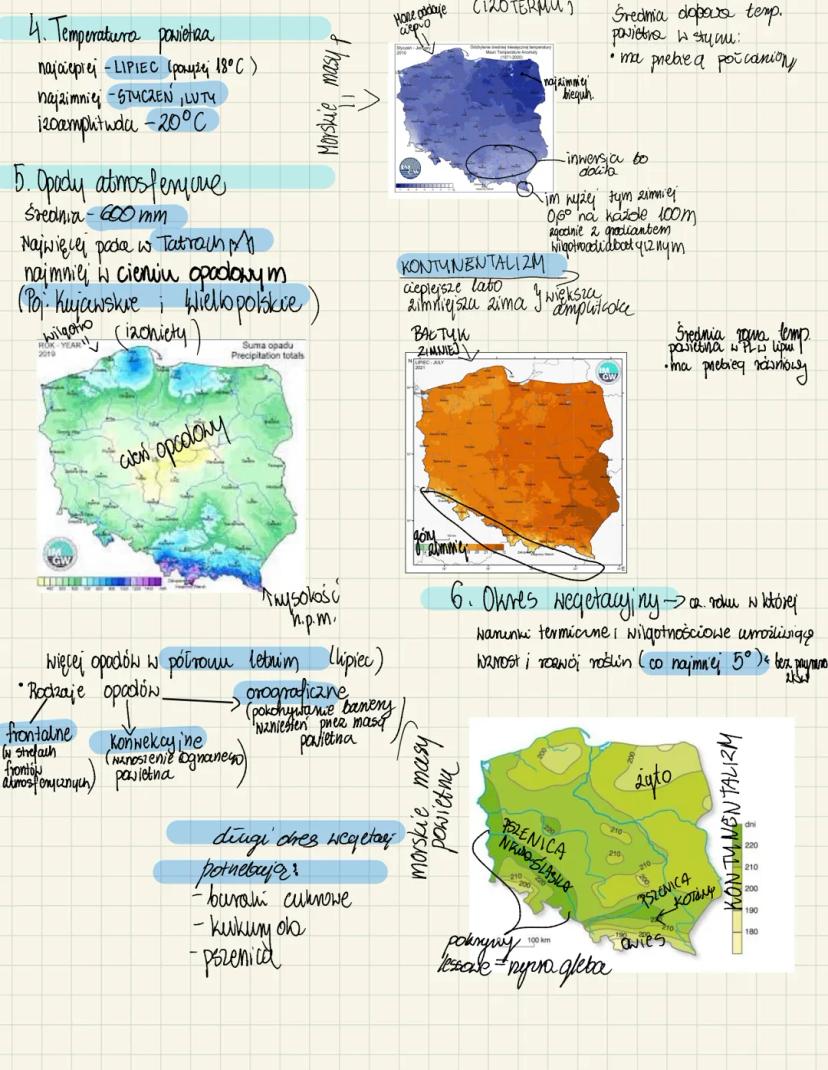 4. Temperatura powietrza
najcieplej - LIPIEC (powyżej 18°C)
najzimniej - STYCZEŃ, LUTY
izoamplituda - 20°C
Morskie masy p
Morze oddaje
ciepło
(IZOTERMY)
Styczeń -
2010
Odchylenie średniej miesięcznej temperatury
Mean Temperature Anomaly
(1971-2000)
najzimniej
biegun
inwersja bo
dolina
im wyżej tym zimniej
0,6° na każde 100m
zgodnie z gradientem
wilgotnoadiabatycznym
Średnia dobowa temp.
powietrza w styczniu:
• ma przebieg południowy
5. Opady atmosferyczne
Średnia - 600 mm
Najwięcej pada w Tatrach
najmniej w cieniu opadowym
(Poj. Kujawskie i Wielkopolskie)
wilgotno
!!
(izohiety)
ROK - YEAR
2019
Suma opadu
Precipitation totals
cień opadowy
IM
GW
wysokość
n.p.m.
KONTYNENTALIZM
cieplejsze lato
zimniejsza zima } większa
amplituda
BAŁTYK
ZIMNIEJ
LIPIEC - JULY
2021
IM
GW
góry
zimniej
Średnia roczna temp.
powietrza w PL w lipcu
• ma przebieg równikowy
6. Okres wegetacyjny -> cz. roku w której
warunki termiczne i wilgotnościowe umożliwiają
wzrost i rozwój roślin (co najmniej 5°)
więcej opadów w półroczu letnim (lipiec)
• Rodzaje opadów
orograficzne
(pokonywanie bariery
wzniesień przez masę
powietrza)
frontalne
(w strefach
frontów
atmosferycznych)
konwekcyjne
(wznoszenie ogrzanego
powietrza)
długi okres wegetacji
potrzebują:
- buraki cukrowe
- kukurydza
- pszenica
morskie masy
powietrza
KONTYNENTALIZM
żyto
PSZENICA
NIZINA ŚLĄSKA
PSZENICA
KOTLINY
owies
200
200
220
210
210
210
210
200
220
190
200
210
100 km
dni
220
210
200
190
180
pokrywy
lessowe = żyzna gleba